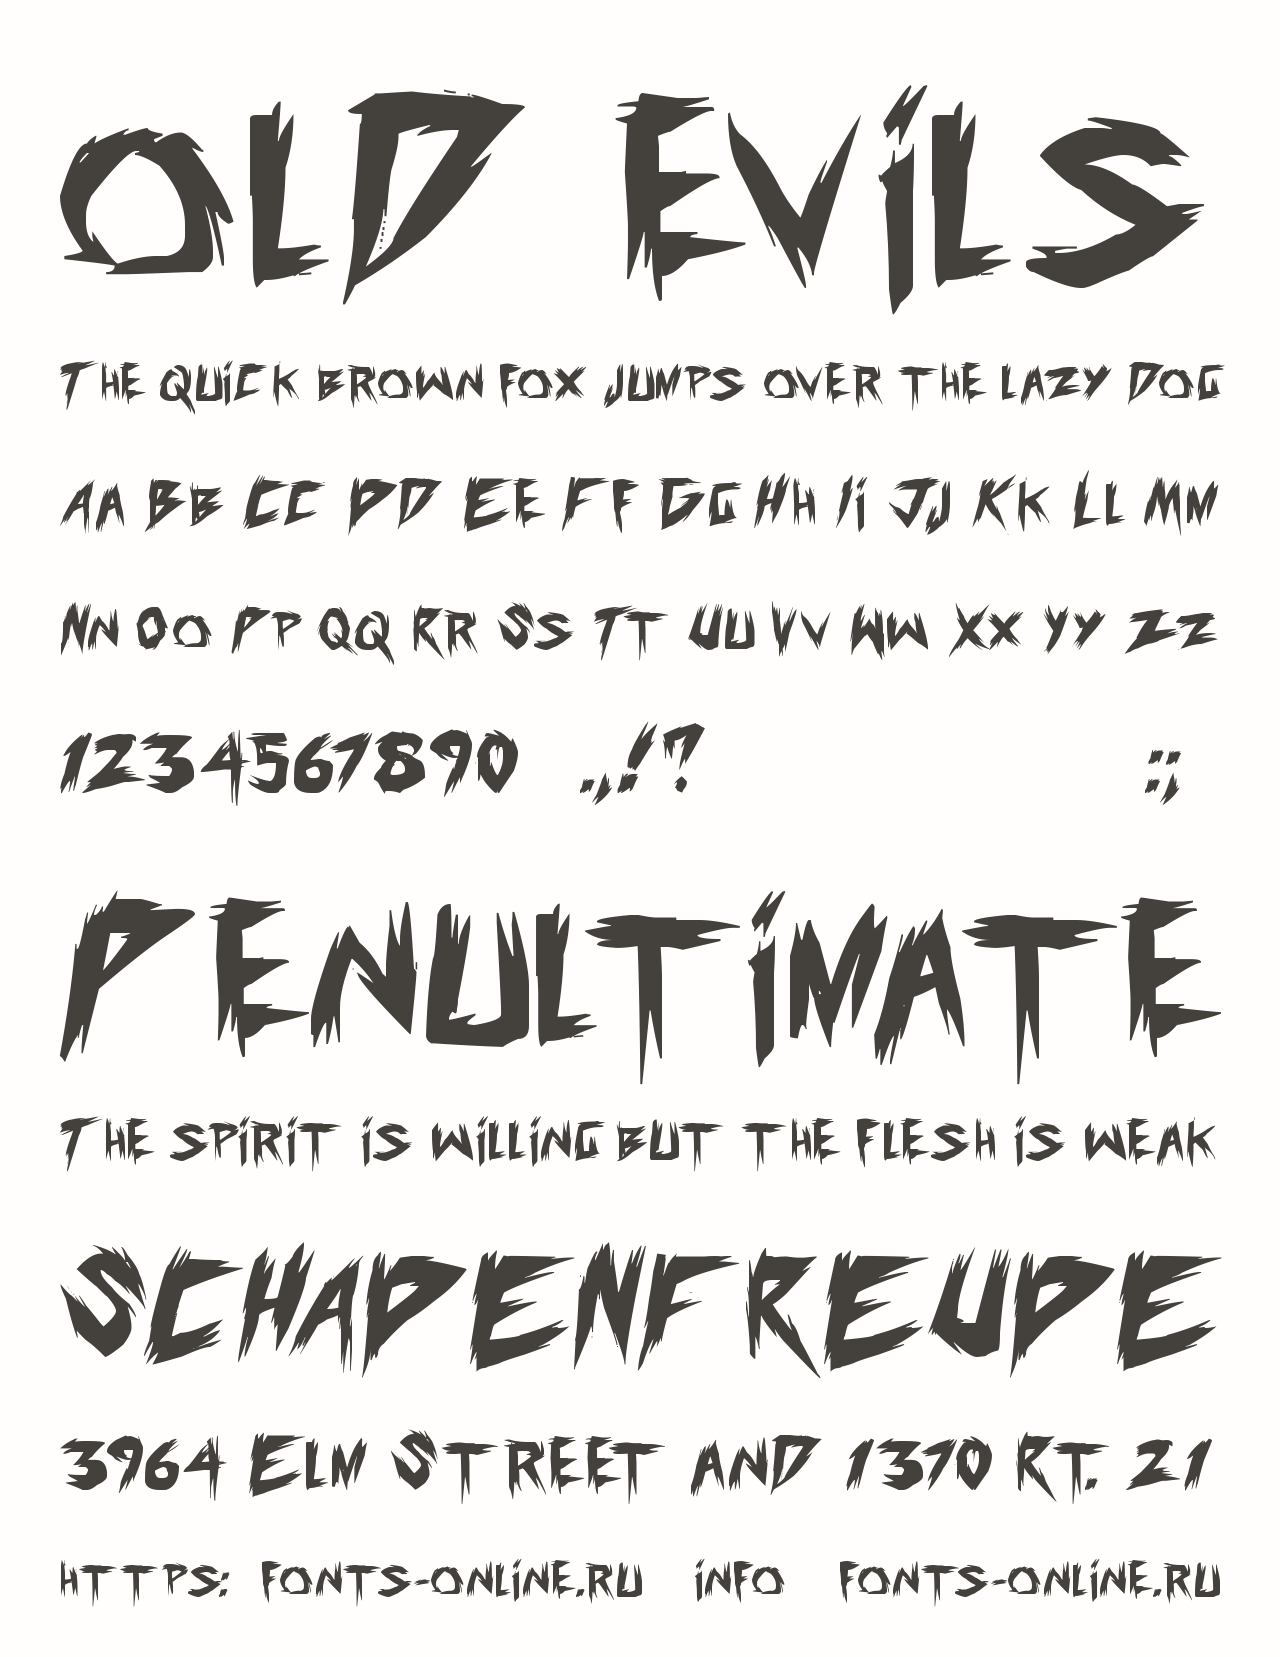 Old Evils
The quick brown fox jumps over the lazy dog
Aa Bb Cc Dd Ee Ff Gg Hh Ii Jj Kk Ll Mm
Nn Oo Pp Qq Rr Ss Tt Uu Vv Ww Xx Yy Zz
1234567890 .,:!? :;
Penultimate
The spirit is willing but the flesh is weak
SCHADENFREUDE
3964 Elm Street and 1370 Rt. 21
https: fonts-online.ru info fonts-online.ru